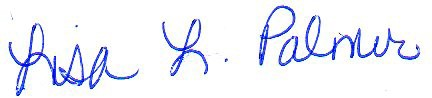 Lisa L. Palmer